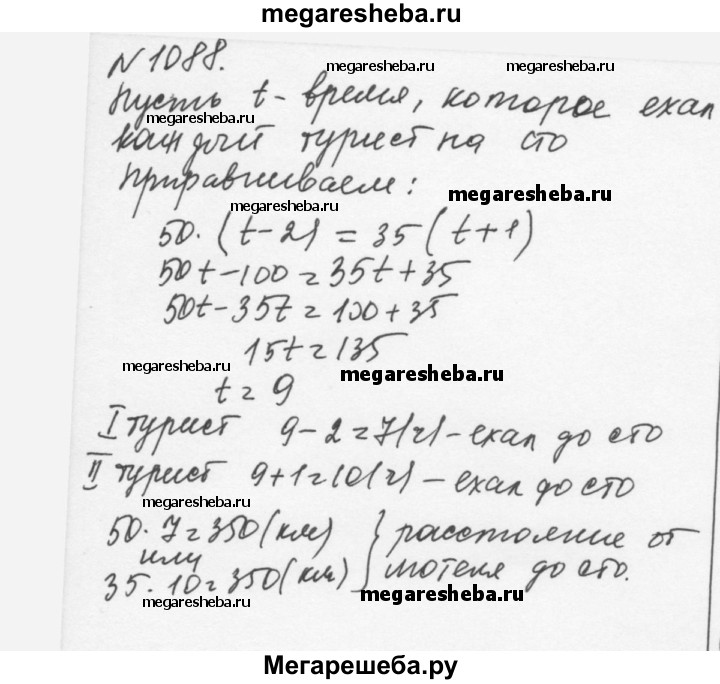 megaresheba.ru
N 1088.
megaresheba.ru megaresheba.ru
Пусть t - время, которое ехал
megaresheba.ru
каждый турист на сто
Приравниваем:
megaresheba.ru
megaresheba.ru
50·(t-2) = 35(t+1)
50t-100=35t+35
50t-35t=100+35
15t=135
megaresheba.ru megaresheba.ru
t=9
I турист 9-2=7(ч)-ехал до сто
II турист 9+1=10(ч)-ехал до сто
megaresheba.ru megaresheba.ru
50·7=350(км) } расстояние от
или
35·10=350(км) } мотеля до сто.
megaresheba.ru megaresheba.ru
Мегарешеба.ру